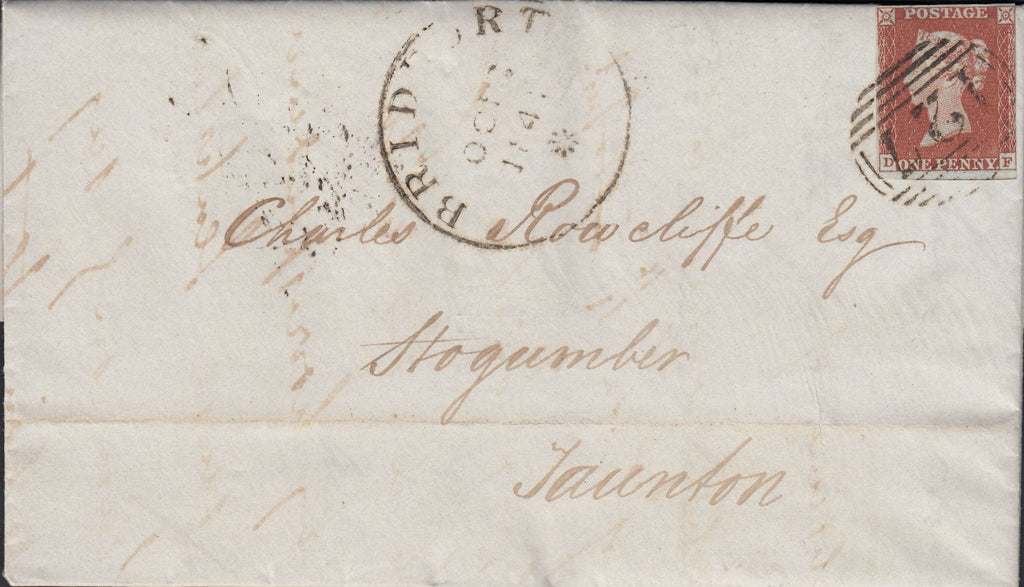 BRIDPORT
OCT
POSTAGE
D ONE PENNY F
Charles Rowcliffe Esq
Stogumber
Taunton